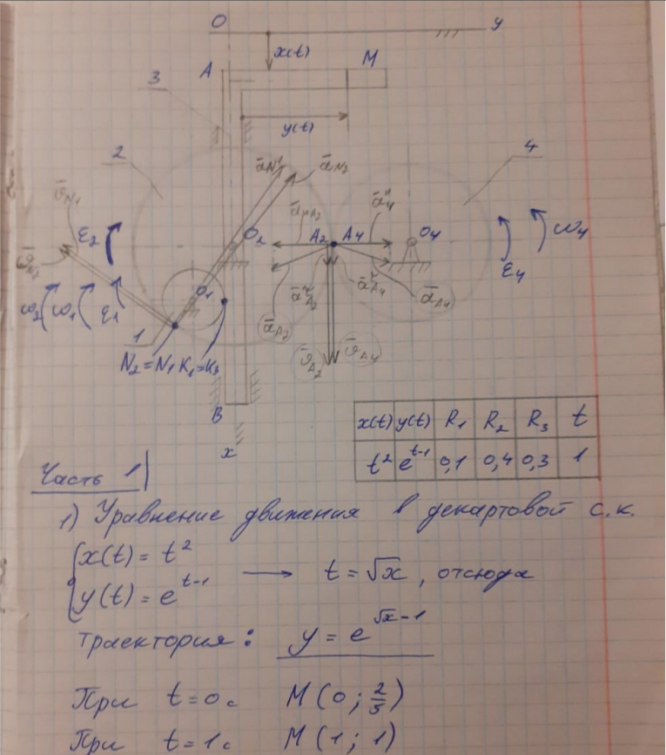 O
y
x(t)
A
M
3
y(t)
2
4
ā_N1
ā_N2
v̄_N1
ε₂
O₂
A₂ A₄
O₄
ω₄
ε₄
ω₂ ω₁ ε₁
O₁
ā_A4
ā_A2
1
N₂=N₁ K₁=K₃
v̄_A2 v̄_A4
B
x
x(t) y(t) R₁ R₂ R₃ t
t² e^(t-1) 0,1 0,4 0,3 1
Часть 1
1) Уравнение движения в декартовой с.к.
{x(t) = t²
{y(t) = e^(t-1) → t = √x, отсюда
траектория: y = e^(√x-1)
При t=0c M(0; 2/5)
При t=1c M(1; 1)